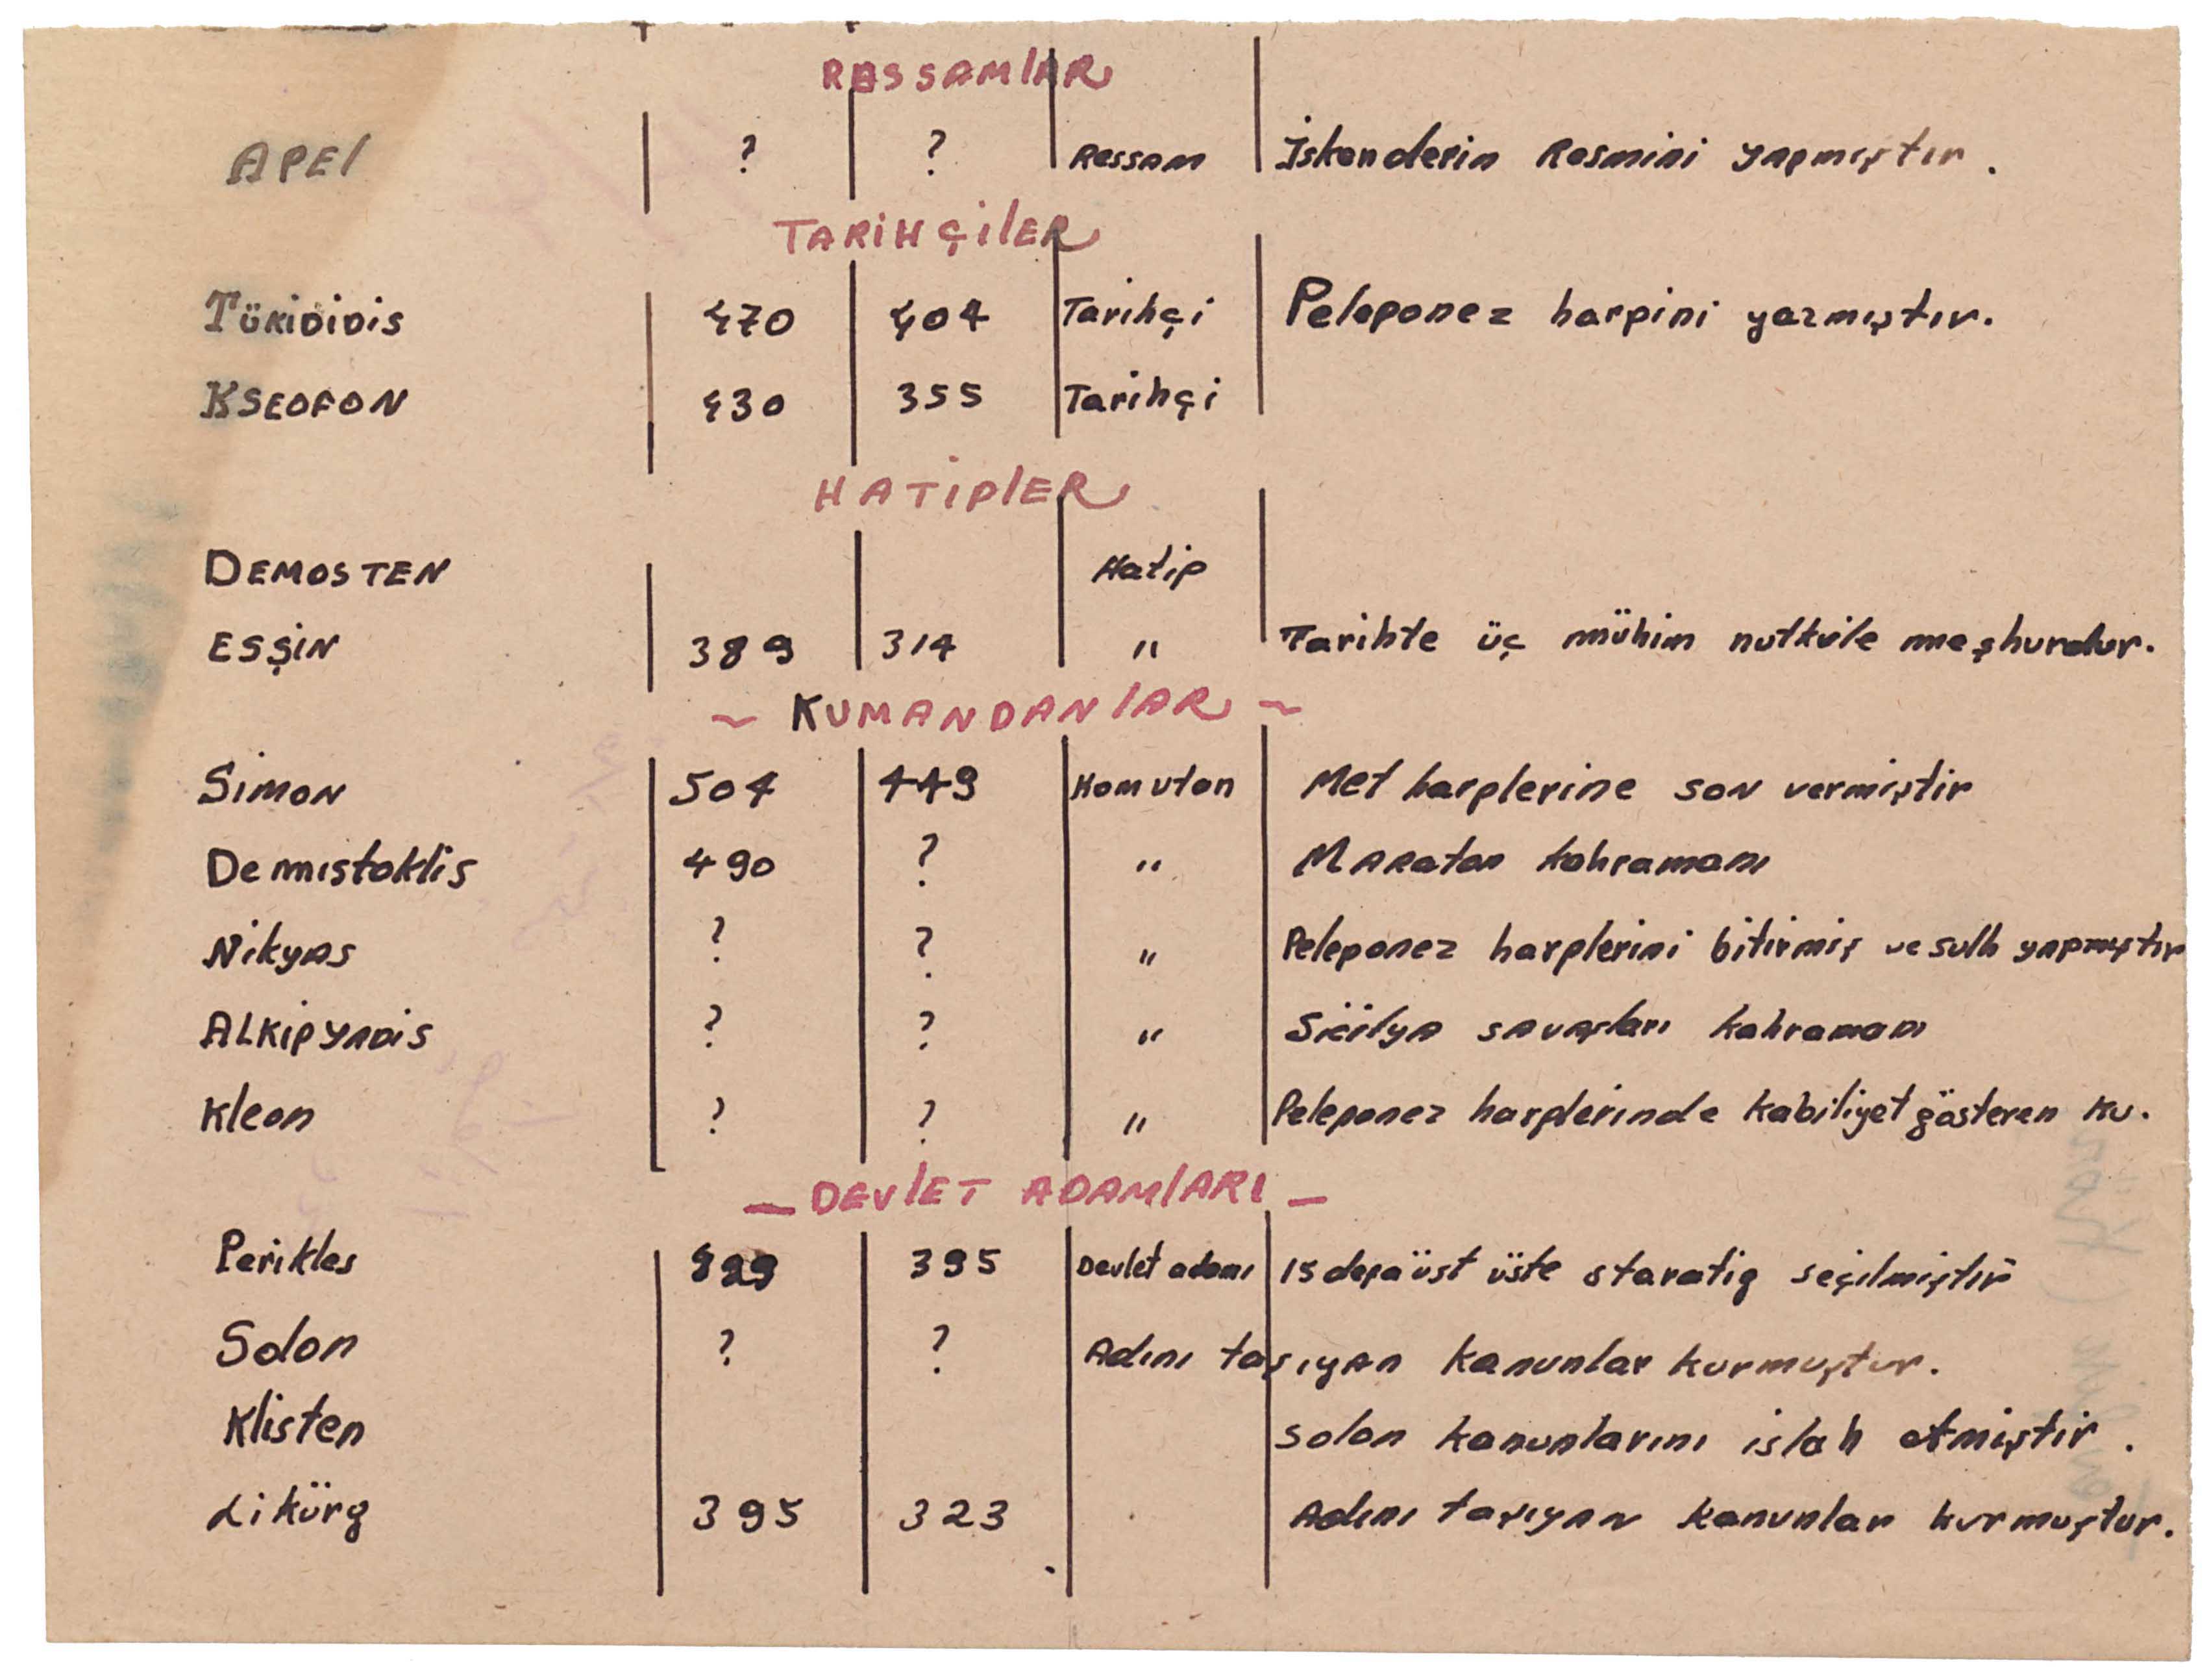 RESSAMlAR
APEl ? ? Ressam İskenderin Resmini yapmıştır.
TARİHÇİlER
Tükididis 470 404 Tarihçi Peleponez harpini yazmıştır.
KSEOFON 430 355 Tarihçi
HATİPlER
DEMOSTEN Hatip
ESŞİN 389 314 " Tarihte üç mühim nutkile meşhurdur.
~ KUMANDANlAR ~
Simon 504 449 Komutan Met harplerine son vermiştir
Demıstoklis 490 ? " Maraton kahramanı
Nikyas ? ? " Peleponez harplerini bitirmiş ve sulh yapmıştır
ALKİPYADİS ? ? " Sicilya savaşları kahramanı
Kleon ? ? " Peleponez harplerinde kabiliyet gösteren ku.
— DEVlET ADAMlARI —
Perikles 395 Devlet adamı 15 defa üst üste staratig seçilmiştir
Solon ? ? Adını taşıyan kanunlar kurmuştur.
Klisten Solon kanunlarını islah etmiştir.
Likürg 395 323 Adını taşıyan kanunlar kurmuştur.